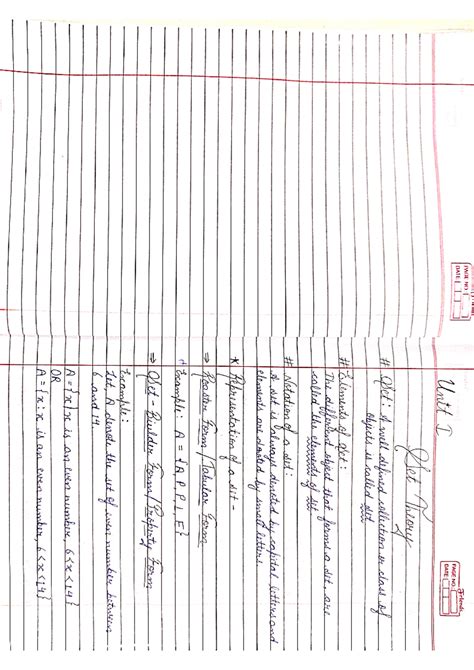 PAGE NO.
DATE
Friends
PAGE NO.
DATE
Unit I
Set Theory
# Set: A well defined collection or class of
objects is called set
# Elements of Set:
The different object that forms a set, are
called the elements of set
# Notation of a set:
A set is always denoted by capital letters and
elements are denoted by small letters.
* Representation of a set -
⇒ Roaster Form / Tabular Form
Example: A = {A, P, P, L, E}
⇒ Set-Builder Form / Property Form
Example:
Let, A denote the set of even number between
6 and 14.
A = {x | x is an even number, 6<x<14}
OR
A = {x : x is an even number, 6<x<14}